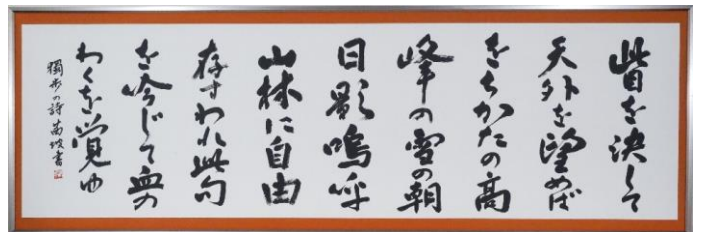 眥を決して
天外を望めば
をちかたの高
峰の雪の朝
日影嗚呼
山林に自由
存すわれ此句
を吟じて血の
わくを覚ゆ
獨歩の詩 書